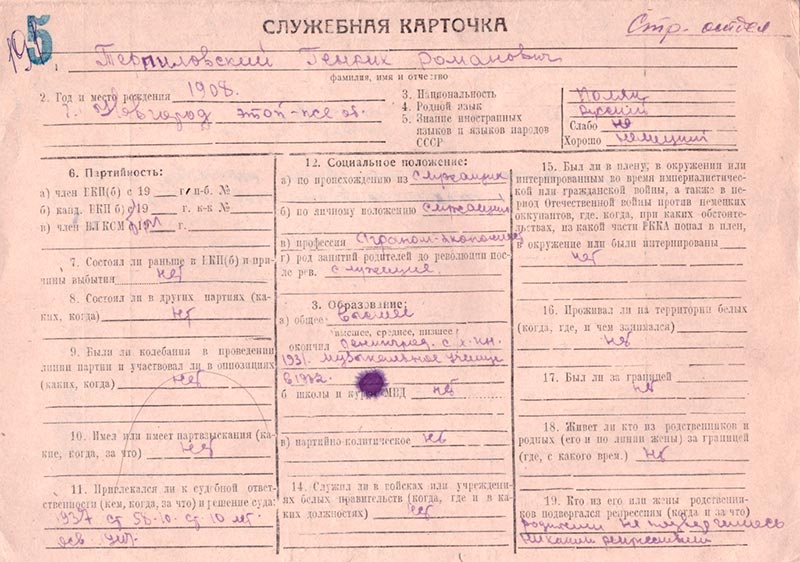 СЛУЖЕБНАЯ КАРТОЧКА
Стр. отдел
195
1 Терпиловский Генрих Романович
фамилия, имя и отчество
2. Год и место рождения 1908.
г. Новгород этой-же об.
3. Национальность Поляк
4. Родной язык русский
5. Знание иностранных языков и языков народов СССР
Слабо не
Хорошо немецкий
6. Партийность:
а) член ВКП(б) с 19 г. п-б. №
б) канд. ВКП(б) 19 г. к-к №
в) член ВЛКСМ с 19 г.
7. Состоял ли раньше в ВКП(б) и при-
чины выбытия нет
8. Состоял ли в других партиях (ка-
ких, когда) нет
9. Были ли колебания в проведении
линии партии и участвовал ли в оппозициях
(каких, когда) нет
10. Имел или имеет партвзыскания (ка-
кие, когда, за что) нет
11. Привлекался ли к судебной ответ-
ственности (кем, когда, за что) и решение суда:
1937 ст 58-10. ст 10 лет.
осв
12. Социальное положение:
а) по происхождению из служащих
б) по личному положению служащий
в) профессия Агроном-экономист
г) род занятий родителей до революции пос-
ле рев. служащие.
3. Образование:
а) общее высшее
высшее, среднее, низшее
окончил Ленинград. с.х. ин.
1931. музыкальное училище
в 1932.
б школы и курсы МВД нет
в) партийно-политическое нет
14. Служил ли в войсках или учрежден-
иях белых правительств (когда, где и в ка-
ких должностях) нет
15. Был ли в плену, в окружении или
интернированным во время империалистичес-
кой или гражданской войны, а также в пе-
риод Отечественной войны против немецких
оккупантов, где, когда, при каких обстоятель-
ствах, из какой части РККА попал в плен,
в окружение или были интернированы
нет
16. Проживал ли на территории белых
(когда, где, и чем занимался)
нет
17. Был ли за границей
нет
18. Живет ли кто из родственников и
родных (его и по линии жены) за границей
(где, с какого врем.) нет
19. Кто из его или жены родственни-
ков подвергался репрессиям (когда и за что)
родными не подвергались
никаким репрессиям